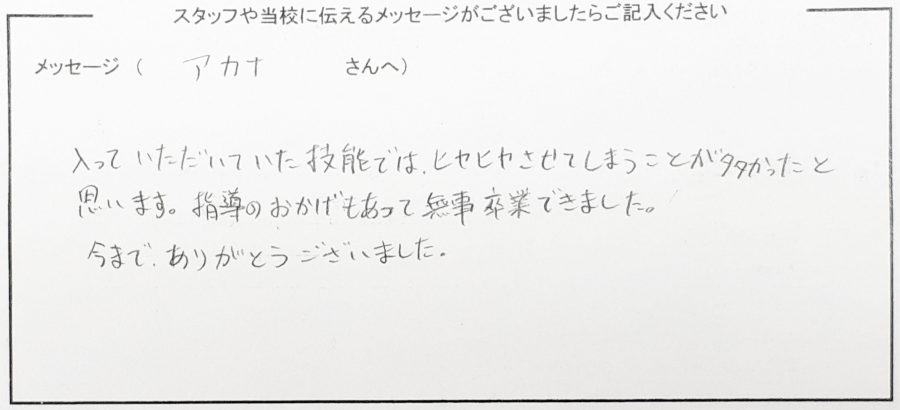 スタッフや当校に伝えるメッセージがございましたらご記入ください
メッセージ ( アカナ さんへ)
入っていただいていた技能では、ヒヤヒヤさせてしまうことが多かったと
思います。指導のおかげもあって無事卒業できました。
今まで、ありがとうございました。